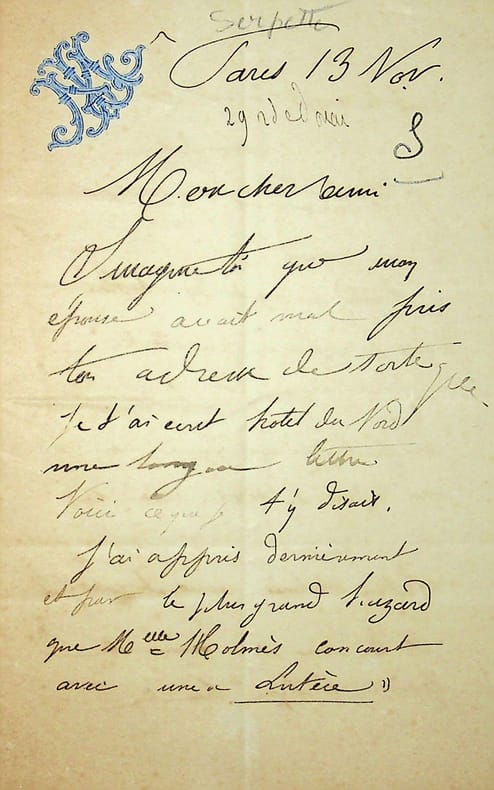 Serpette
Paris 13 Nov.
29 r de Douai
S
Mon cher ami
Imagine toi que mon
épouse avait mal pris
ton adresse de sorte que
je t'ai ecrit hotel du Nord
une longue lettre
Voici ce que je t'y disais.
J'ai appris dernièrement
et par le plus grand hazard
que Melle Holmès concourt
avec une Lutèce